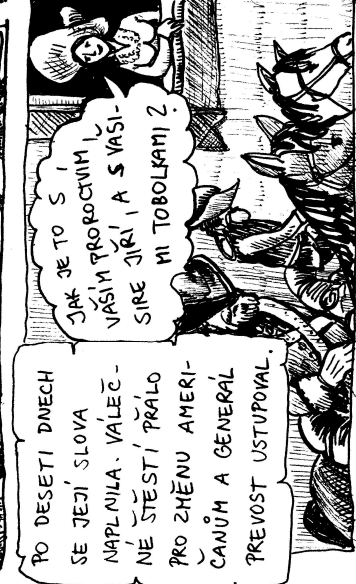 PO DESETI DNECH
SE JEJÍ SLOVA
NAPLNILA. VÁLEČ-
NÉ ŠTĚSTÍ PŘÁLO
PRO ZMĚNU AMERI-
ČANŮM A GENERÁL
PREVOST USTUPOVAL.
JAK JE TO S
VAŠÍM PROROCTVÍM,
SIRE JIŘÍ, A S VAŠI-
MI TOBOLKAMI?